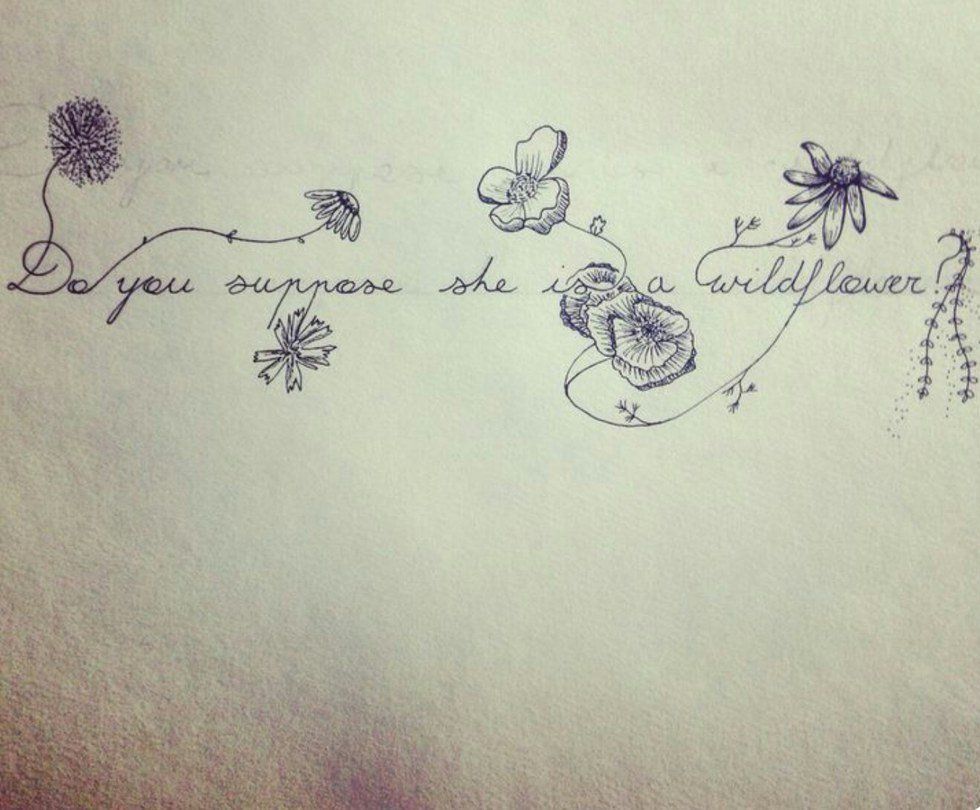 Do you suppose she is a wildflower?